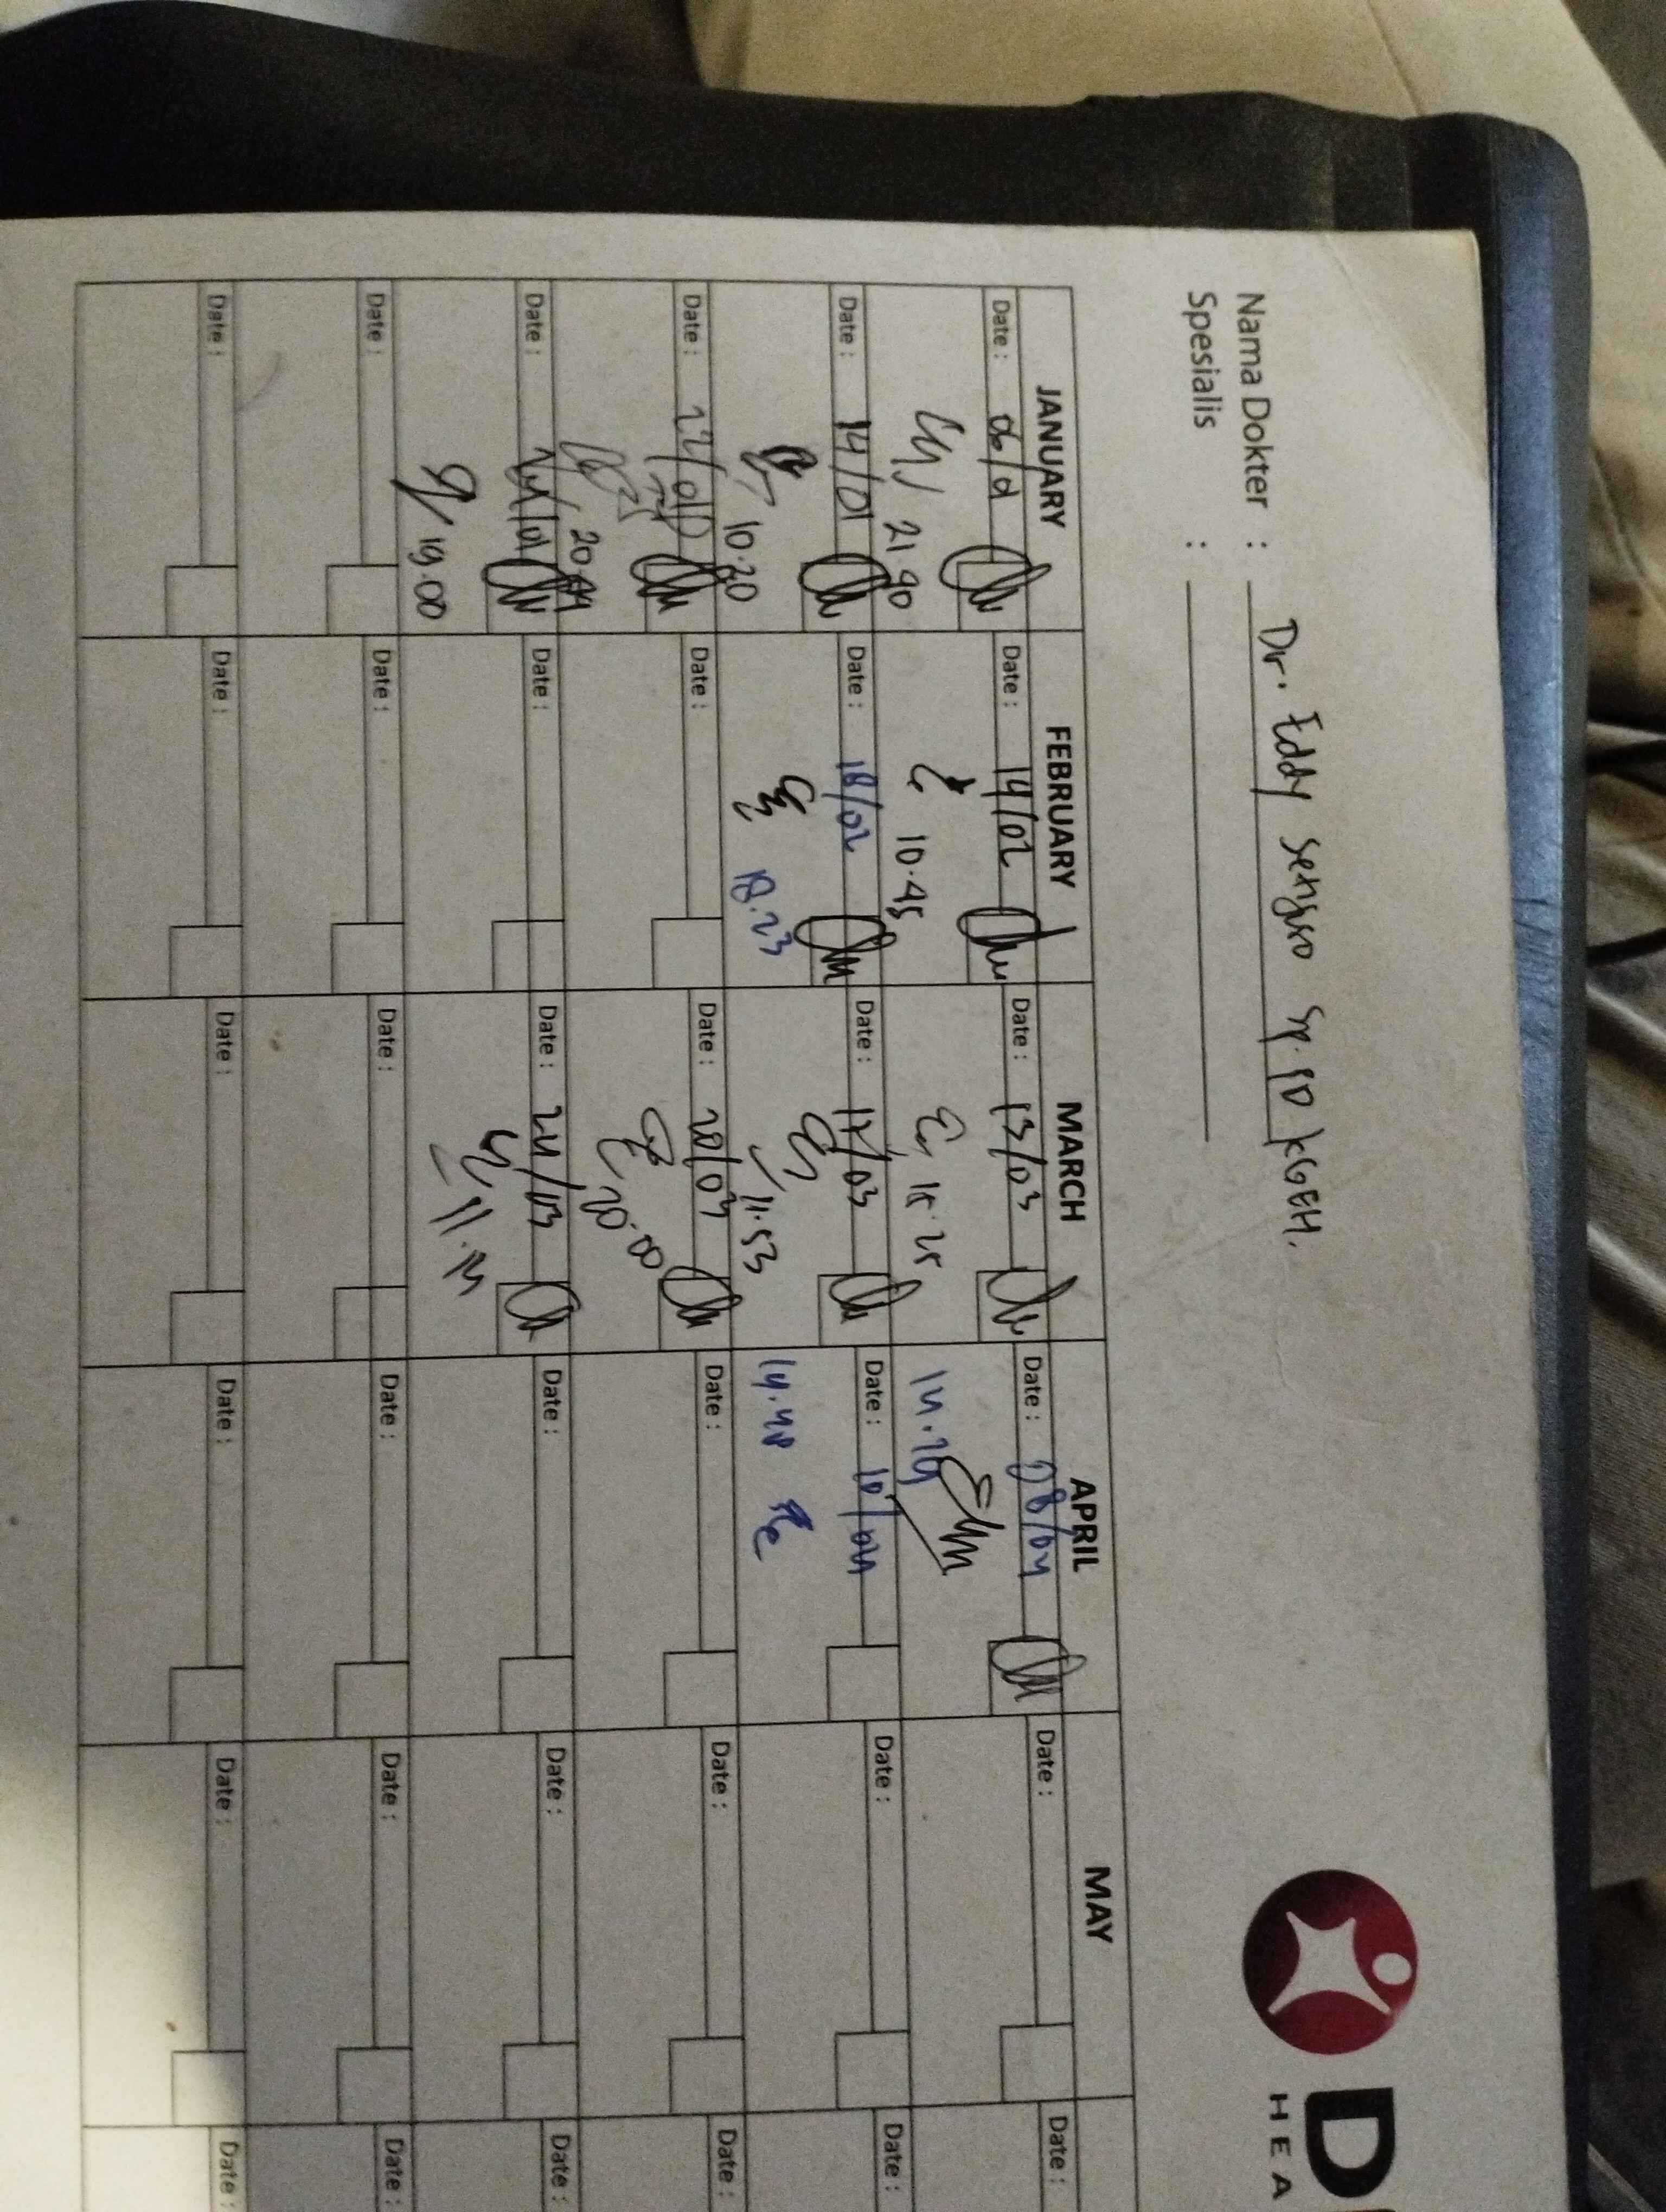 D
HEA
Nama Dokter : Dr. Eddy
Sp. PD KGEH.
Spesialis :
JANUARY FEBRUARY MARCH APRIL MAY
Date : 06/01 Date : 14/02 Date : 13/03 Date : 08/04 Date : Date :
10.45
Date : 14/01 Date : 18/02 Date : 17/03 Date : 10/04 Date : Date :
10.20 18.23 11.53 14.48
Date : 22/01 Date : Date : 20/03 Date : Date : Date :
20.00
Date : 24/01 Date : Date : 24/03 Date : Date : Date :
19.00
Date : Date : Date : Date : Date : Date :
Date : Date : Date : Date : Date : Date :